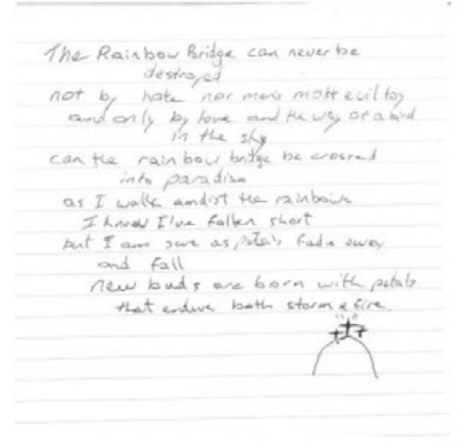 The Rainbow Bridge can never be
destroyed
not by hate nor mens most evil toy
and only by love and the way of a bird
in the sky
can the rainbow bridge be crossed
into paradise
as I walk amdist the rainbows
I know I've fallen short
but I am sure as petals fade away
and fall
new buds are born with petals
that endure both storm & fire.